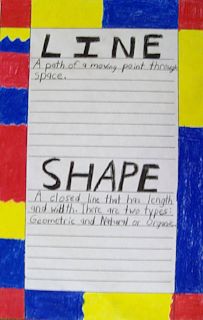 LINE
A path of a moving point through
space.
SHAPE
A closed line that has length
and width. There are two types:
Geometric and Natural or Organic.